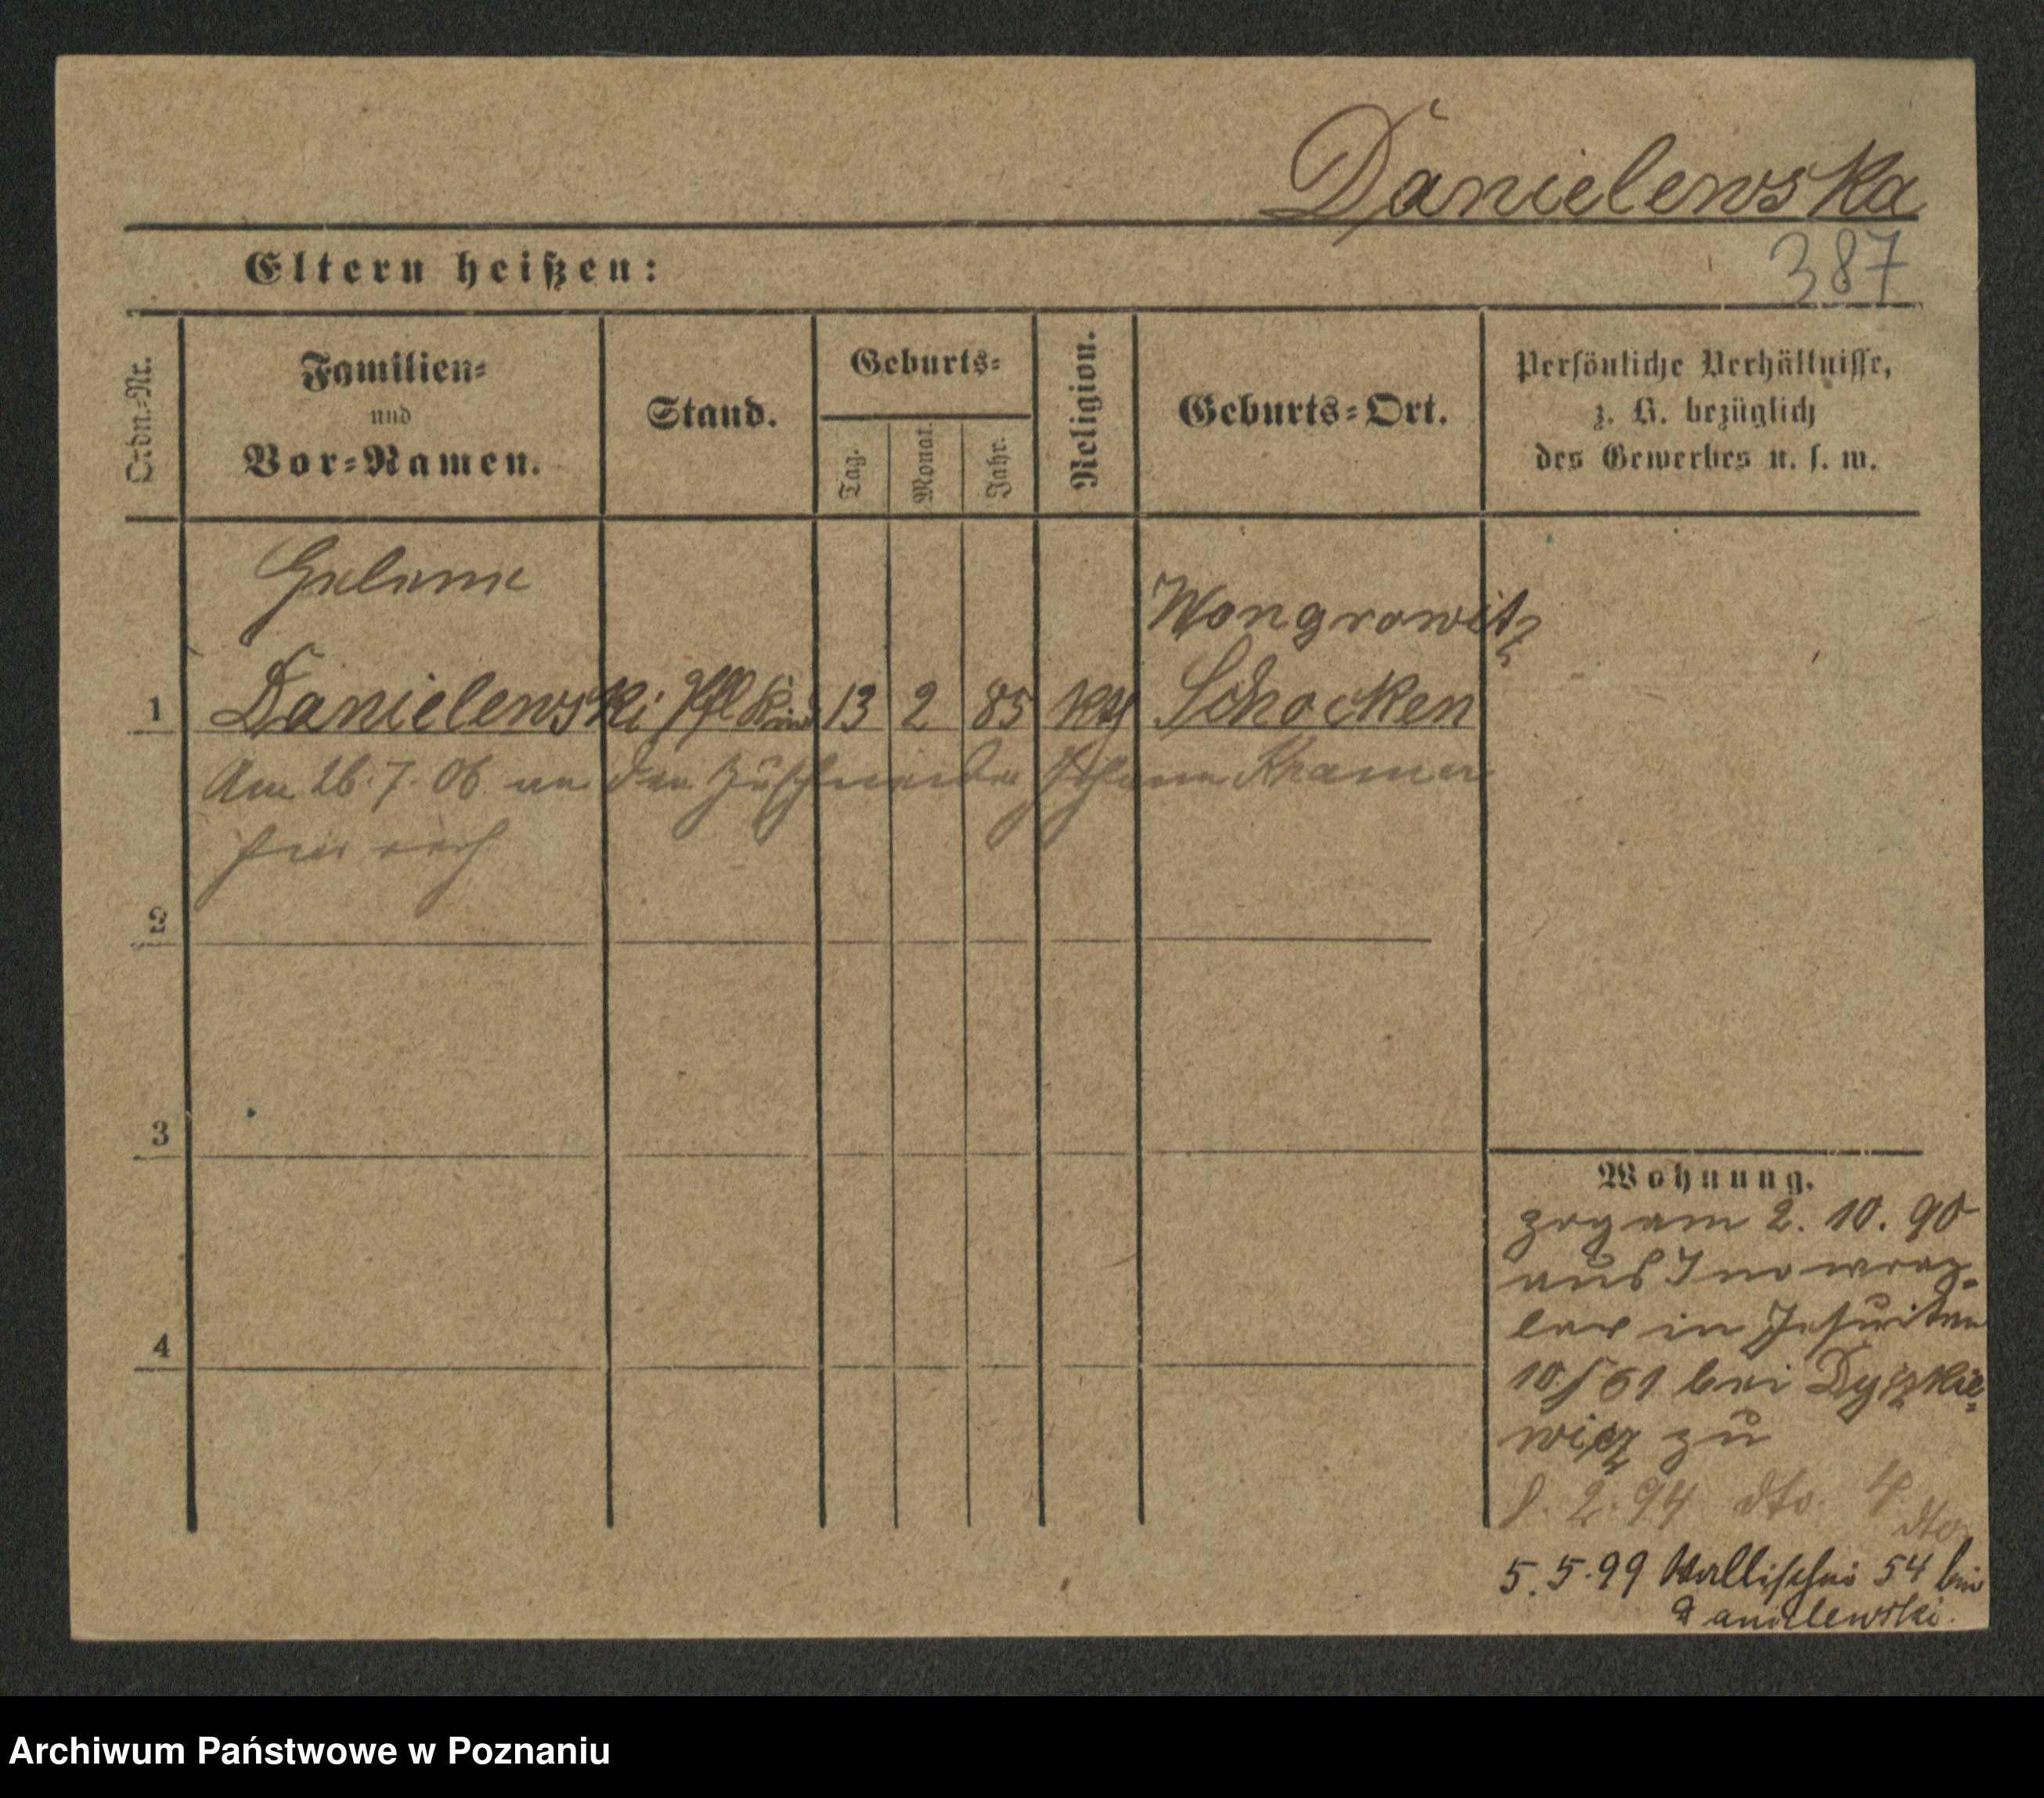 Danielewska
387
Eltern heißen:
Ordn.-Nr.
Familien-
und
Vor-Namen.
Stand.
Geburts-
Tag.
Monat.
Jahr.
Religion.
Geburts-Ort.
Persönliche Verhältnisse,
z. B. bezüglich
des Gewerbes u. s. w.
Helene
Wongrowitz
1 Danielewski Pfl Kind 13 2 85 kth Schocken
Am 26.7.06 an den Zuschneider Johann Kramer
2
3
4
Wohnung.
zog am 2. 10. 90
aus Inowraz-
law in Jesuiten
10/61 bei Dyszkie-
wicz zu
8. 2. 94 dto. 4 dto
5. 5. 99 Wallischei 54 bei
Danielewski.
Archiwum Państwowe w Poznaniu